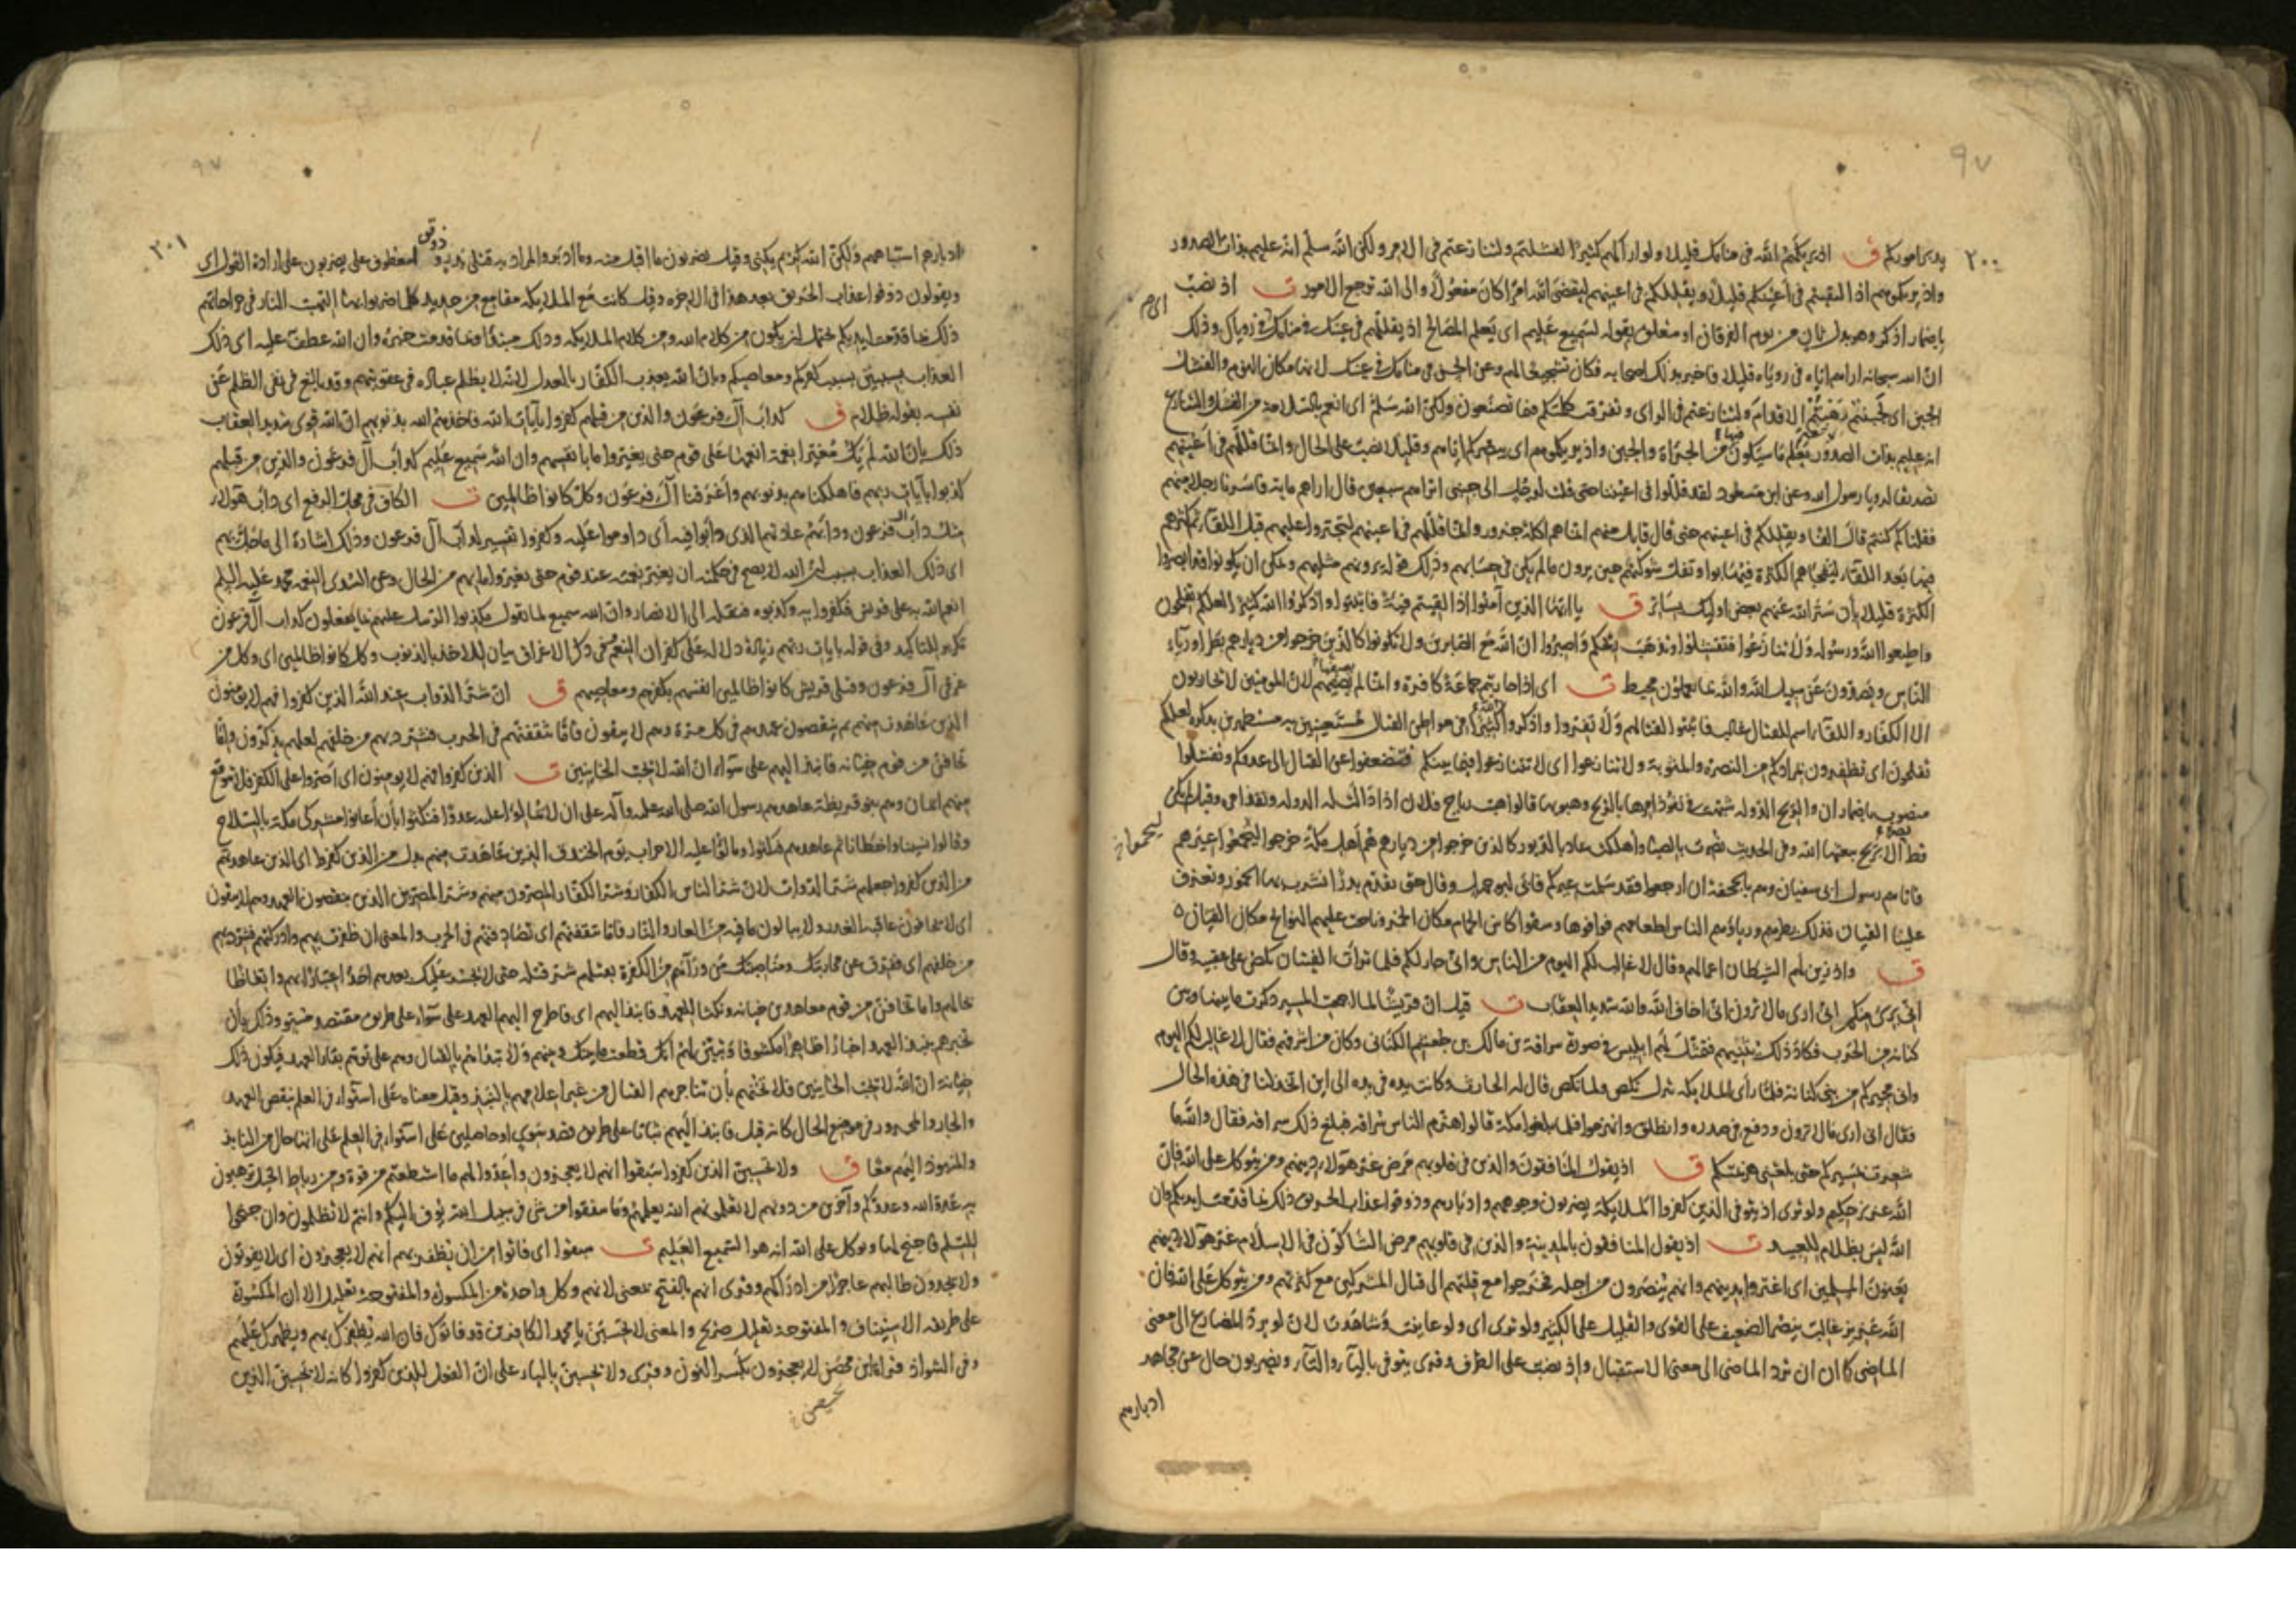 ٩٧
٢٠٠
يدبر اموركم ق اذ يريكهم الله فى منامك قليلا ولو اراكهم كثيرا لفشلتم ولتنازعتم فى الامر ولكن الله سلم انه عليم بذات الصدور
واذ يريكموهم اذ التقيتم فى اعينكم قليلا ويقللكم فى اعينهم ليقضى الله امرا كان مفعولا والى الله ترجع الامور ت اذ نصب
باضمار اذكر وهو بدل ثان من يوم الفرقان او متعلق بقوله لسميع عليم اى يعلم المصالح اذ يقللهم فى عينك فى منامك فى رؤياك وذلك
ان الله سبحانه اراهم اياه فى رؤياه قليلا فاخبر بذلك اصحابه فكان تشجيعا لهم وعن الحسن فى منامك فى عينك لانها مكان النوم والفشل
الجبن اى لجبنتم وهبتم الاقدام ولتنازعتم فى الراى وتفرقت كلمتكم فيما تصنعون ولكن الله سلم اى انعم بالسلامة من الفشل والتنازع
انه عليم بذات الصدور يعلم ما سيكون فيها من الجراة والجبن واذ يريكموهم اى يبصركم اياهم وقليلا نصب على الحال وانما قللهم فى اعينهم
تصديقا لرويا رسول الله وعن ابن مسعود لقد قللوا فى اعيننا حتى قلت لرجل الى جنبى اتراهم سبعين قال اراهم ماية فاسرنا رجلا منهم
فقلنا كم كنتم قال الفا ويقللكم فى اعينهم حتى قال قايل منهم انما هم اكلة جزور وانما قللهم فى اعينهم ليجتروا عليهم قبل اللقاء ثم كثرهم
فيها بعد اللقاء ليفجاهم الكثرة فيهابوا وتفل شوكتهم حين يرون ما لم يكن فى حسابهم وذلك قوله يرونهم مثليهم ويمكن ان يكونوا قد ابصروا
الكثرة قليلا بأن ستر الله عنهم بعض اوليك بساتر ق يا ايها الذين آمنوا اذا لقيتم فئة فاثبتوا واذكروا الله كثيرا لعلكم تفلحون
واطيعوا الله ورسوله ولا تنازعوا فتفشلوا وتذهب ريحكم واصبروا ان الله مع الصابرين ولا تكونوا كالذين خرجوا من ديارهم بطرا ورئاء
الناس ويصدون عن سبيل الله والله بما يعملون محيط ت اى اذا حاربتم جماعة كافرة وانما لم يصفهم لان المومنين لا يحاربون
الا الكفار واللقاء اسم للقتال غالب فاثبتوا لقتالهم ولا تفروا واذكروا الله كثيرا فى مواطن القتال مستعينين به مستظهرين بذكره لعلكم
تفلحون اى تظفرون بمرادكم من النصرة والمثوبة ولا تنازعوا اى لا تتنازعوا فيما بينكم فتضعفوا عن القتال الى عدوكم وتفشلوا
منصوب باضمار ان والريح الدولة شبهت فى نفوذ امرها بالريح وهبوبها قالوا هبت رياح فلان اذا دالت له الدولة ونفذ امره وقيل لم يكن
قط نصر الا بريح يبعثها الله وفى الحديث نصرت بالصبا واهلكت عاد بالدبور كالذين خرجوا من ديارهم هم اهل مكة خرجوا ليحموا عيرهم
فاتاهم رسول ابى سفيان وهم بالجحفة ان ارجعوا فقد سلمت عيركم فابى ابو جهل وقال حتى نقدم بدرا نشرب بها الخمور وتعزف
علينا القيان فذلك بطرهم ورياؤهم الناس اطعامهم فوافوها وسقوا كاس الحمام مكان الخمر وناحت عليهم النوائح مكان القيان
ق واذ زين لهم الشيطان اعمالهم وقال لا غالب لكم اليوم من الناس وانى جار لكم فلما تراءت الفئتان نكص على عقبيه وقال
انى برئ منكم انى ارى ما لا ترون انى اخاف الله والله شديد العقاب ت قيل ان قريشا لما اجمعت المسير ذكرت ما بينها وبين
كنانة من الحرب فكاد ذلك يثنيهم فتمثل لهم ابليس فى صورة سراقة بن مالك بن جعشم الكنانى وكان من اشرافهم فقال لا غالب لكم اليوم
وانى مجيركم من بنى كنانة فلما رأى الملائكة تنزل نكص ولما نكص قال له الحارث وكانت يده فى يده الى اين اتخذلنا فى هذه الحال
فقال انى ارى ما لا ترون ودفع فى صدره وانطلق وانهزموا فلما بلغوا مكة قالوا هزم الناس سراقة فبلغ ذلك سراقة فقال والله ما
شعرت بمسيركم حتى بلغنى هزيمتكم ق اذ يقول المنافقون والذين فى قلوبهم مرض غر هؤلاء دينهم ومن يتوكل على الله فان
الله عزيز حكيم ولو ترى اذ يتوفى الذين كفروا الملائكة يضربون وجوههم وادبارهم وذوقوا عذاب الحريق ذلك بما قدمت ايديكم وان
الله ليس بظلام للعبيد ت اذ يقول المنافقون بالمدينة والذين فى قلوبهم مرض الشاكون فى الاسلام غر هؤلاء دينهم
يعنون المسلمين اى اغتروا بدينهم وانهم ينصرون من اجله فخرجوا مع قلتهم الى قتال المشركين مع كثرتهم ومن يتوكل على الله فان
الله عزيز غالب ينصر الضعيف على القوى والقليل على الكثير ولو ترى اى ولو عاينت وشاهدت لان لو يرد المضارع الى معنى
الماضى كما ان ان ترد الماضى الى معنى الاستقبال واذ نصب على الظرف وقرى يتوفى بالياء والتاء ويضربون حال عن مجاهد
ادبارهم
٩٧
٢٠١
ادبارهم استاههم ولكن الله كريم يكنى وقيل يضربون ما اقبل منه وما ادبر والمراد به قتلى بدر وذوقوا معطوف على يضربون على ارادة القول اى
ويقولون ذوقوا عذاب الحريق بعد هذا فى الاخرة وقيل كانت مع الملايكة مقامع من حديد كلما ضربوا بها التهبت النار فى جراحاتهم
ذلك بما قدمت ايديكم يحتمل ان يكون من كلام الله ومن كلام الملايكة وذلك مبتدأ وبما قدمت خبره وان الله عطف عليه اى ذلك
العذاب بسببين بسبب كفركم ومعاصيكم وبان الله يعذب الكفار بالعدل لانه لا يظلم عباده فى عقوبتهم وقد بالغ فى نفى الظلم عن
نفسه بقوله ظلام ق كدأب آل فرعون والذين من قبلهم كفروا بآيات الله فاخذهم الله بذنوبهم ان الله قوى شديد العقاب
ذلك بان الله لم يك مغيرا نعمة انعمها على قوم حتى يغيروا ما بانفسهم وان الله سميع عليم كدأب آل فرعون والذين من قبلهم
كذبوا بآيات ربهم فاهلكناهم بذنوبهم واغرقنا آل فرعون وكل كانوا ظالمين ت الكاف فى محل الرفع اى دأب هؤلاء
مثل دأب آل فرعون ودأبهم عادتهم الذى دأبوا فيه اى داوموا عليه وكفروا تفسير لدأب آل فرعون وذلك اشارة الى ما حل بهم
اى ذلك العذاب بسبب ان الله لا يصح فى حكمته ان يغير نعمته عند قوم حتى يغيروا ما بهم من الحال وعن السدى النعمة محمد عليه السلم
انعم الله به على قريش فكفروا به وكذبوه فنقله الى الانصار وان الله سميع لما يقول مكذبوا الرسل عليم بما يفعلون كدأب آل فرعون
تكرير للتاكيد وفى قوله بايات ربهم زيادة دلالة على كفران النعم وفى ذكر الاغراق بيان للاخذ بالذنوب وكل كانوا ظالمين اى وكل من
غرقى آل فرعون وقتلى قريش كانوا ظالمين انفسهم بكفرهم ومعاصيهم ق ان شر الدواب عند الله الذين كفروا فهم لا يؤمنون
الذين عاهدت منهم ثم ينقضون عهدهم فى كل مرة وهم لا يتقون فاما تثقفنهم فى الحرب فشرد بهم من خلفهم لعلهم يذكرون واما
تخافن من قوم خيانة فانبذ اليهم على سواء ان الله لا يحب الخاينين ت الذين كفروا فهم لا يومنون اى اصروا على الكفر فلا يتوقع
منهم ايمان وهم بنو قريظة عاهدهم رسول الله صلى الله عليه وآله على ان لا يمالئوا عليه عدوا فنكثوا بأن اعانوا مشركى مكة بالسلاح
وقالوا نسينا واخطانا ثم عاهدهم فنكثوا ومالؤا عليه الاحزاب يوم الخندق الذين عاهدت منهم بدل من الذين كفروا اى الذين عاهدتهم
من الذين كفروا جعلهم شر الدواب لان شر الناس الكفار وشر الكفار المصرون منهم وشر المصرين الذين ينقضون العهد وهم لا يتقون
اى لا يخافون عاقبة الغدر ولا يبالون ما فيه من العار والنار فاما تثقفنهم اى تصادفنهم فى الحرب والمعنى ان ظفرت بهم وادركتهم فشرد بهم
من خلفهم اى ففرق عن محاربتك ومناصبتك من وراءهم من الكفرة بقتلهم شر قتلة حتى لا يجسر عليك بعدهم احد اعتبارا بهم واتعاظا
بحالهم واما تخافن من قوم معاهدين خيانة ونكثا للعهد فانبذ اليهم اى فاطرح اليهم العهد على سواء على طريق مقتصد مستو وذلك بأن
تخبرهم بنبذ العهد اخبارا ظاهرا مكشوفا وتبين لهم انك قطعت ما بينك وبينهم ولا تبدأهم بالقتال وهم على توهم بقاء العهد فيكون ذلك
خيانة ان الله لا يحب الخاينين فلا تخنهم بأن تناجزهم القتال من غير اعلامهم بالنبذ وقيل معناه على استواء فى العلم بنقض العهد
والجار والمجرور فى موضع الحال كانه قيل فانبذ اليهم ثابتا على طريق قصد سوى او حاصلين على استواء فى العلم على انها حال من النابذ
والمنبوذ اليهم معا ق ولا تحسبن الذين كفروا سبقوا انهم لا يعجزون واعدوا لهم ما استطعتم من قوة ومن رباط الخيل ترهبون
به عدو الله وعدوكم وآخرين من دونهم لا تعلمونهم الله يعلمهم وما تنفقوا من شى فى سبيل الله يوف اليكم وانتم لا تظلمون وان جنحوا
للسلم فاجنح لها وتوكل على الله انه هو السميع العليم ت سبقوا اى فاتوا من ان يظفر بهم انهم لا يعجزون اى لا يفوتون
ولا يجدون طالبهم عاجزا من ادراكهم وقرى انهم بالفتح بمعنى لانهم وكل واحدة من المكسورة والمفتوحة تعليل الا ان المكسورة
على طريقة الاستيناف والمفتوحة تعليل صريح والمعنى لا تحسبن يا محمد الكافرين قد فاتوك فان الله يظفرك بهم ويظهرك عليهم
وفى الشواذ قراءة ابن محيصن لا يعجزون بكسر النون وقرى ولا يحسبن بالياء على ان الفعل للذين كفروا كانه لا يحسبن الذين
محيصن